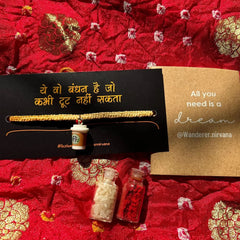 ये वो बंधन है जो
कभी टूट नहीं सकता
All you
need is a
dream
@Wanderer.nirvana